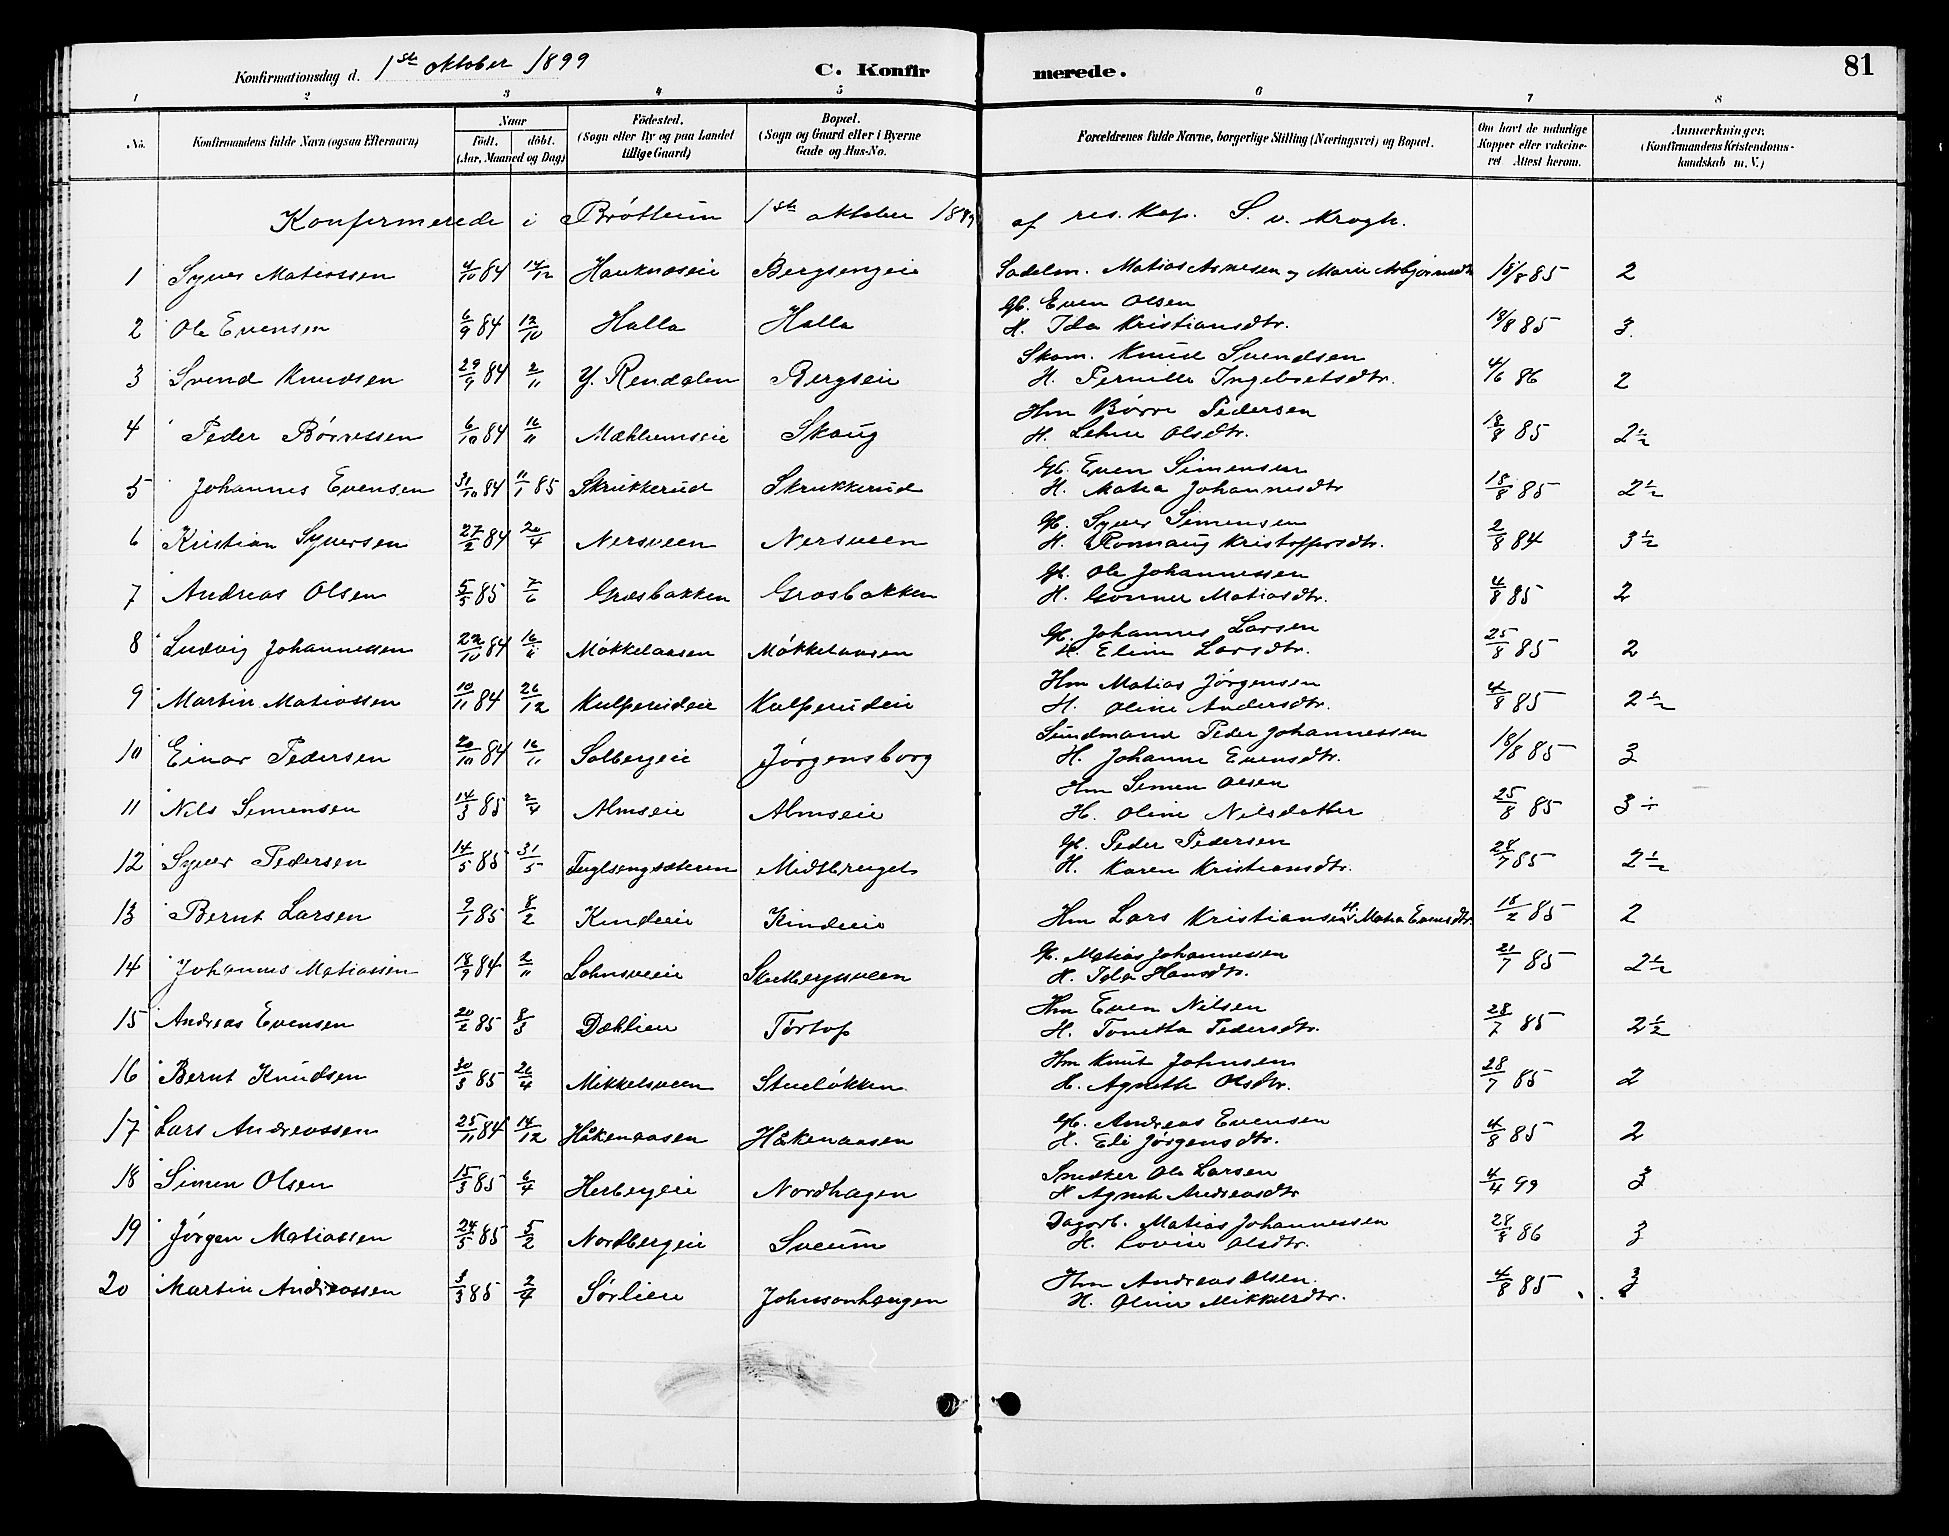 Konfirmationsdag d. 1ste oktober 1899 C. Konfirmerede. 81
1 2 3 4 5 6 7 8
No. Konfirmandens fulde Navn (ogsaa Efternavn) Naar Födt. döbt. (Aar, Maaned og Dag) Födested. (Sogn eller By og paa Landet tillige Gaard) Bopæl. (Sogn og Gaard eller i Byerne Gade og Hus-No. Forældrenes fulde Navne, borgerlige Stilling (Næringsvei) og Bopæl. Om havt de naturlige Kopper eller vakcineret Attest herom. Anmærkninger. (Konfirmandens Kristendomskundskab m. V.)
Konfermerede i Brøttum 1ste oktober 1899 af res. kap. S. v. Krogh.
1 Syver Matiassen 4/10 84 14/12 Hauknæseie Bergsengeie Sadelm. Matias Asmesen og Marie 18/8 85 2
2 Ole Evensen 6/9 84 12/10 Halla Halla Gb. Even Olsen H. Ida Kristiansdtr. 18/8 85 3
3 Svend Knudsen 29/9 84 2/11 Y. Rendalen Bergseie Skom. Knud Svendsen H. Pernille Ingebretsdtr. 4/6 86 2
4 Peder Børresen 6/10 84 16/11 Mæhlumseie Skaug Hm Børre Pedersen H. Lehne Olsdtr. 18/8 85 2½
5 Johannes Evensen 31/10 84 11/1 85 Skrukkerud Skrukkerud Gb. Even Simensen H. Matea Johannesdtr 18/8 85 2½
6 Kristian Syversen 27/2 84 20/4 Nersveen Nersveen Gb. Syver Simensen H. Ronnaug Kristoffersdtr. 2/8 84 3½
7 Andreas Olsen 5/5 85 7/6 Græsbakken Græsbakken Gb. Ole Johannessen H. Gonner Matiasdtr. 4/8 85 2
8 Ludvig Johannessen 22/10 84 16/11 Møkkelaasen Møkkelaasen Gb. Johannes Larsen H. Eline Larsdtr. 25/8 85 2
9 Martin Matiassen 10/11 84 26/12 Kulperudeie Kulperudeie Hm Matias Jørgensen H. Oline Andersdtr. 4/8 85 2½
10 Einar Pedersen 20/10 84 16/11 Solbergeie Jørgensborg Sundmand Peder Johannessen H. Johanne Evensdtr. 18/8 85 3
11 Nils Simensen 14/3 85 2/4 Almseie Almseie Hm Simen Olsen H. Oline Nilsdatter 25/8 85 3÷
12 Syver Pedersen 14/5 85 31/5 Fuglsengsæteren Midtbruget Gb. Peder Pedersen H. Karen Kristiansdtr. 28/7 85 2½
13 Bernt Larsen 9/1 85 8/2 Kindeie Kindeie Hm Lars Kristiansen H. Matea Evensdtr. 18/2 85 2
14 Johannes Matiassen 18/9 84 2/11 Lohnsveeie Skutbergsveen Gb. Matias Johannessen H. Ida Hansdtr. 21/7 85 2½
15 Andreas Evensen 20/2 85 8/3 Dæhlien Tørtop Hm Even Nilsen H. Tonetta Pedersdtr. 28/7 85 2½
16 Bernt Knudsen 30/3 85 26/4 Mikkelsveen Stueløkken Hm Knut Johnsen H. Agnethe Olsdtr. 28/7 85 2
17 Lars Andreassen 25/11 84 14/12 Håkenaasen Håkenaasen Gb. Andreas Evensen H. Eli Jørgensdtr. 4/8 85 2
18 Simen Olsen 15/3 85 6/4 Herbergeie Nordhagen Snedker Ole Larsen H Agnete Andreasdtr 4/4 99 3
19 Jørgen Matiassen 24/5 85 5/2 Nordbergeie Sveum Dagarb. Matias Johannessen H. Lovise Olsdtr. 28/8 86 3
20 Martin Andreassen 3/3 85 2/4 Sørlien Johnsonhaugen Hm Andreas Olsen. H. Oline Mikkelsdtr. 4/8 85 3